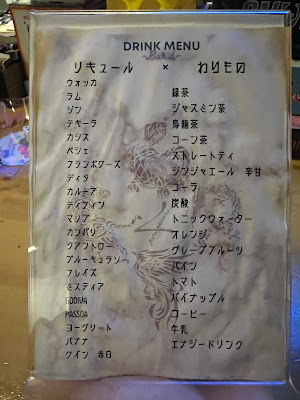 DRINK MENU
リキュール × わりもの
ウォッカ
ラム
ジン
テキーラ
カシス
ペシェ
フランボワーズ
ディタ
カルーア
ティフィン
マリブ
カンパリ
クアントロー
ブルーキュラソー
フレイズ
ミスティア
GODIVA
PASSOA
ヨーグリート
バナナ
ワイン 赤白
緑茶
ジャスミン茶
烏龍茶
コーン茶
ストレートティ
ジンジャエール 辛甘
コーラ
炭酸
トニックウォーター
オレンジ
グレープフルーツ
パイン
トマト
パイナップル
コーヒー
牛乳
エナジードリンク